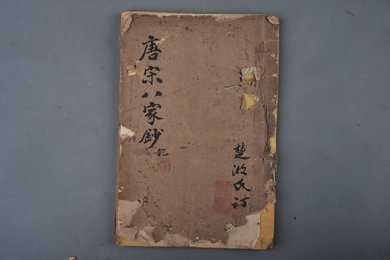 唐宋八家鈔
楚湘氏訂